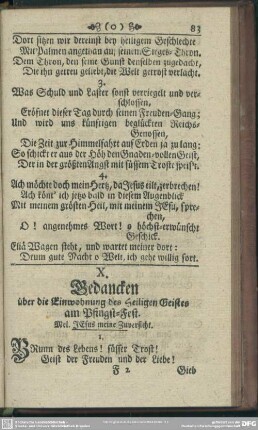 (0) 83
Dort sitzen wir dereinst bey heiligem Geschlechte
Mit Palmen angethan an seinem Sieges-Thron,
Dem Thron, den seine Gunst denselben zugedacht,
Die ihn getreu geliebt, die Welt getrost verlacht.
3.
Was Schuld und Laster sonst verriegelt und ver-
schlossen,
Eröfnet dieser Tag durch seinen Freuden-Gang;
Und wird uns künftigen beglückten Reichs-
Genossen,
Die Zeit zur Himmelfahrt auf Erden ja zu lang:
So schickt er aus der Höh den Gnaden-vollen Geist,
Der in der größten Angst mit süssem Troste speist.
4.
Ach möchte doch mein Hertz, da Jesus eilt, zerbrechen!
Ach könt' ich jetzo bald in diesem Augenblick
Mit meinem grösten Heil, mit meinem JEsu, spre-
chen,
O! angenehmes Wort! o höchst-erwünscht
Geschick.
Eliä Wagen steht, und wartet meiner dort:
Drum gute Nacht o Welt, ich geh willig fort.
X.
Gedancken
über die Einwohnung des Heiligen Geistes
am Pfingst-Fest.
Mel. JEsus meine Zuversicht.
1.
BRunn des Lebens! süsser Trost!
Geist der Freuden und der Liebe!
F 2 Gieb